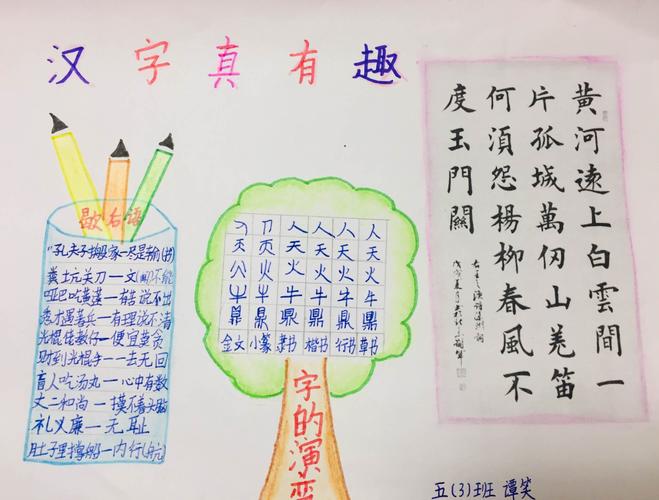 汉字真有趣
歇后语
孔夫子搬家一尽是输(书)
粪土坑关刀一文(闻)不能
哑巴吃黄连一有苦说不出
秀才遇着兵一有理说不清
财到光棍手一一去无回
盲人吃汤丸一心中有数
丈二和尚一摸不着头脑
礼义廉一无耻
肚子里撑船一内行(航)
人人人人
天天天天
火火火火
牛牛牛牛
鼎鼎鼎鼎鼎鼎
金文 小篆 隶书 楷书 行书 草书
字的演变
黄河遠上白雲間一
片孤城萬仞山羌笛
何須怨楊柳春風不
度玉門關
五(3)班 谭笑